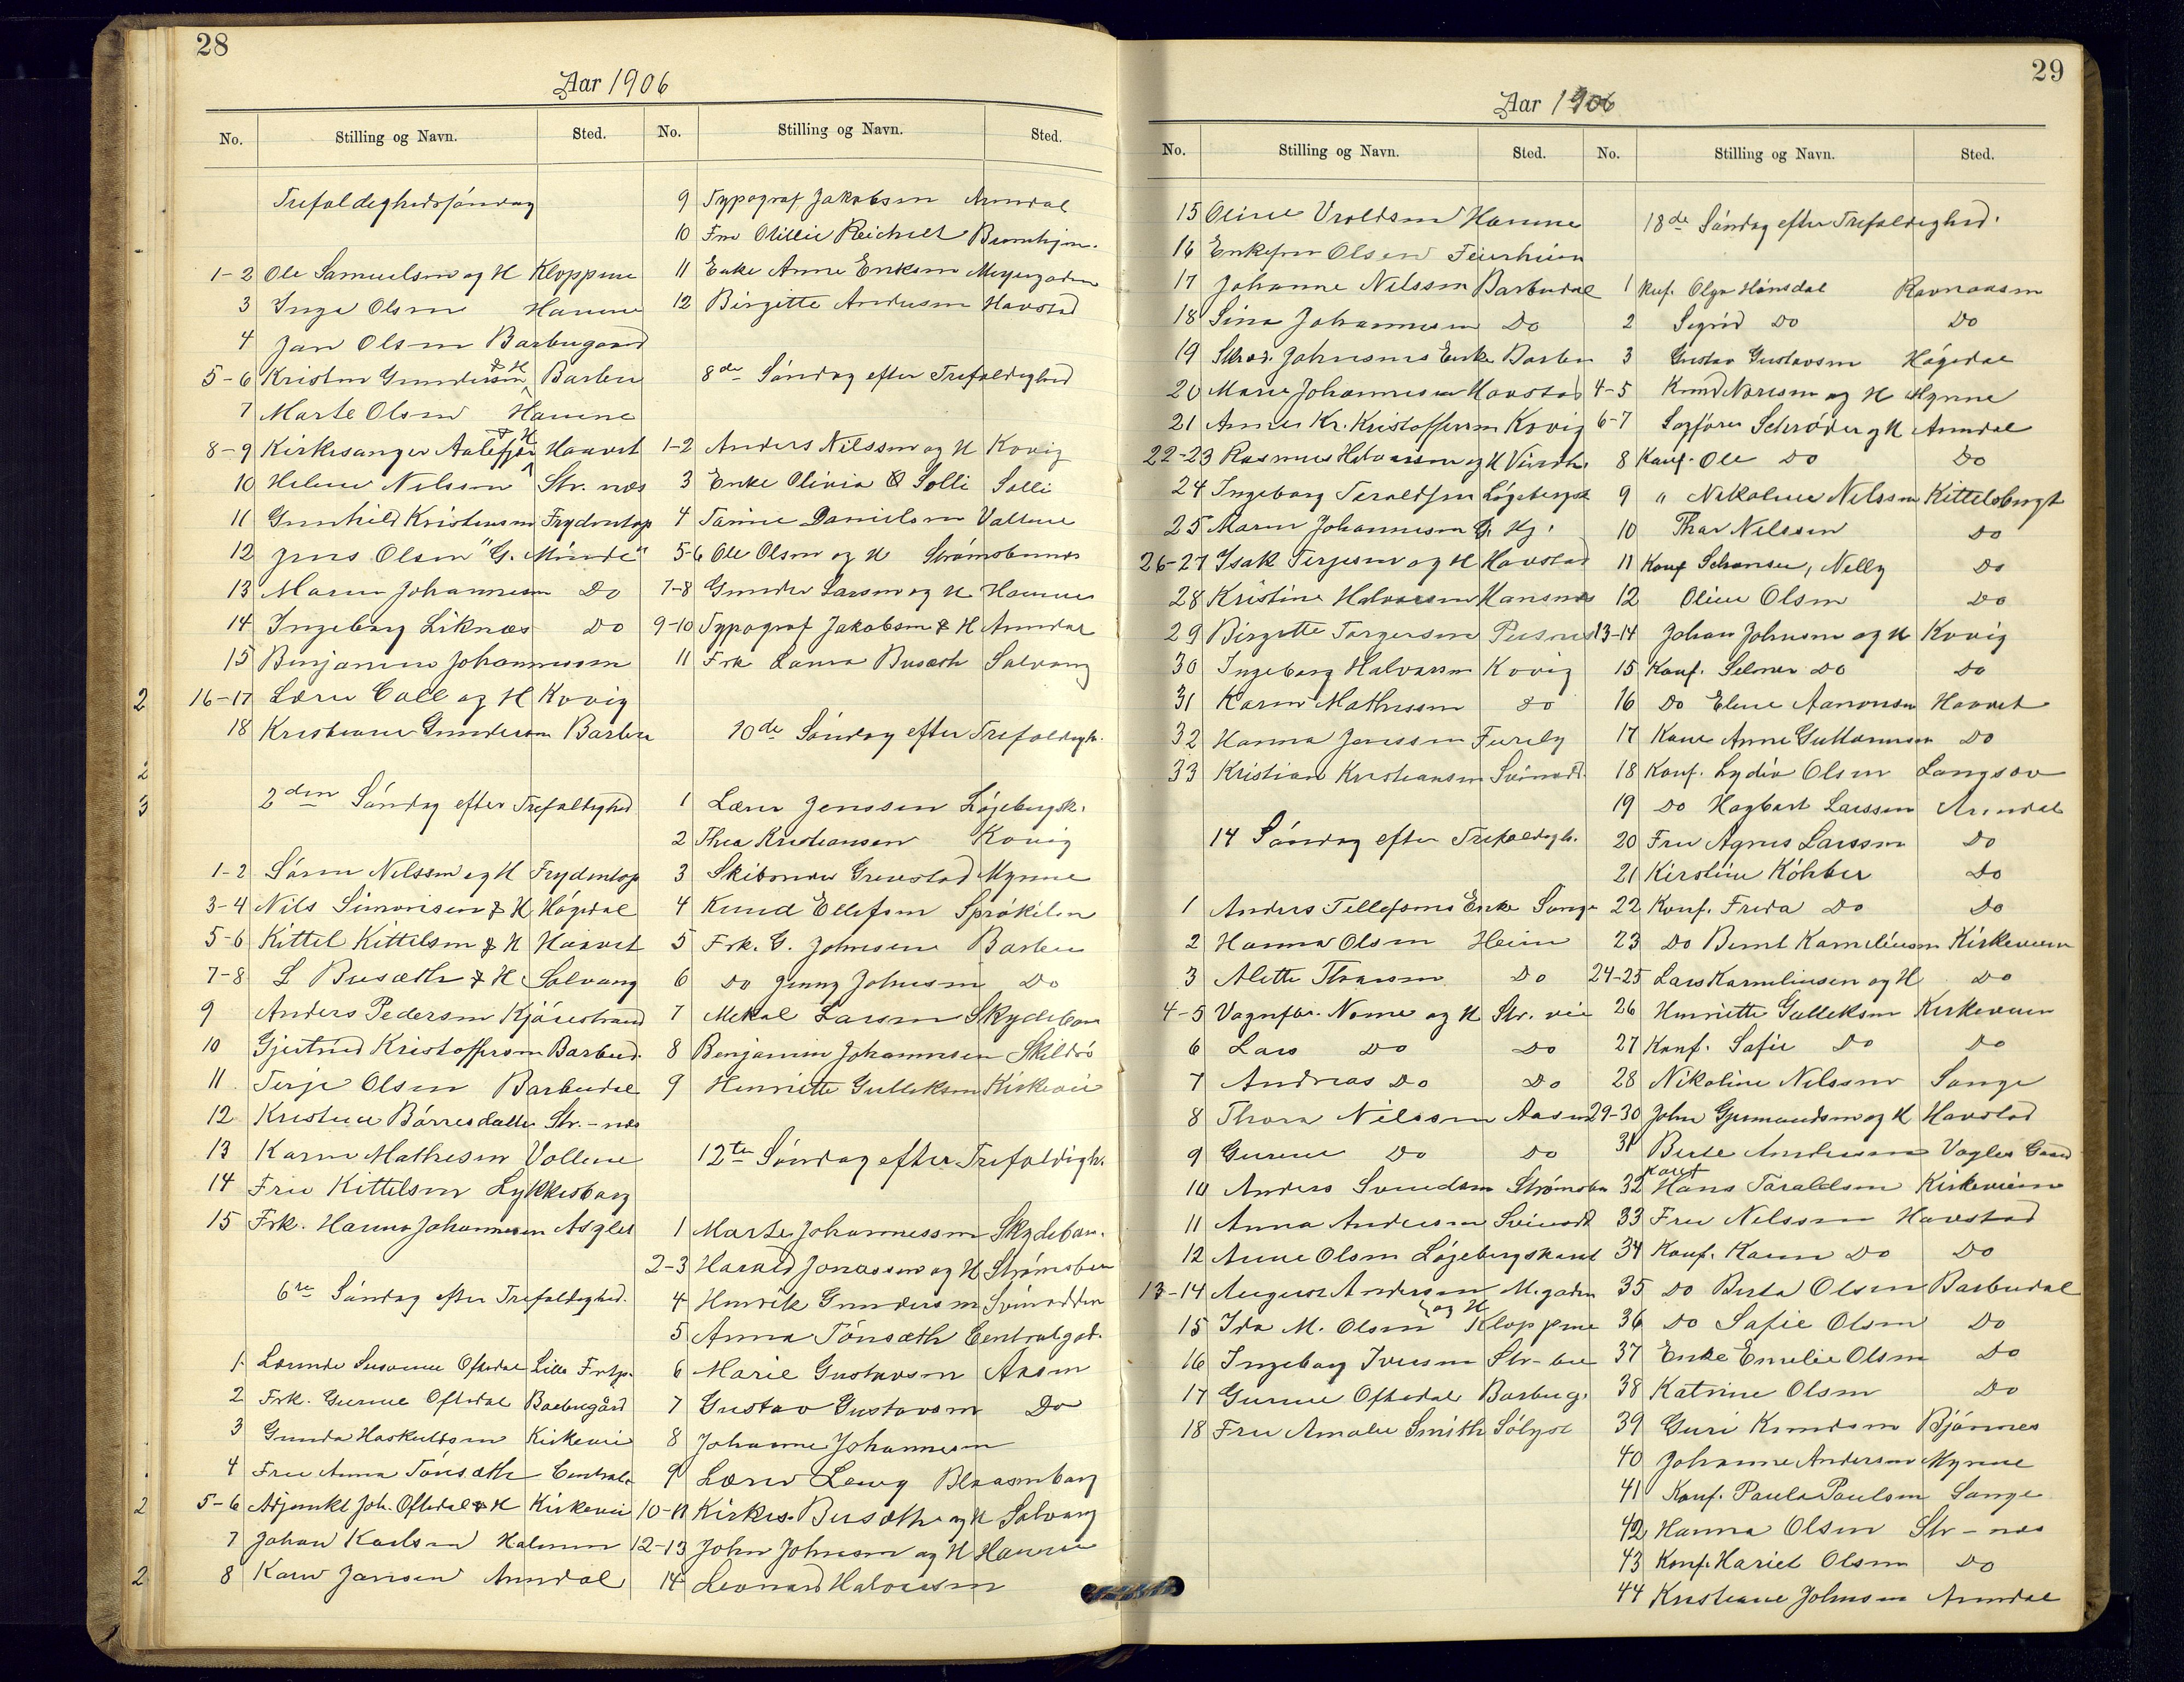 28
Aar 1906
No. Stilling og Navn. Sted.
Trefoldighedssöndag
1-2 Ole Samuelsen og H Kloppene
3 Inga Olsen Havene
4 Jan Olsen Barbugaard
5-6 Kristen Gundersen & H Barbu
7 Marte Olsen Havene
8-9 Kirkesanger & H Haavet
10 Helene Nilssen Str. næs
11 Gunhild Kristensen Frydentop
12 Jens Olsen "G. Minde"
13 Maren Johannesen Do
14 Ingeborg Liknæs Do
15 Benjamin Johannessen
16-17 Lærer Call og H Kovig
18 Kristiane Gundersen Barbu
2den Söndag efter Trefoldighed
1-2 Sören Nilssen og H Frydentop
3-4 Nils Simonsen & H Högedal
5-6 Kittel Kittelsen & H Haavet
7-8 L Busæth & H Solvang
9 Anders Pedersen Kjörestrand
10 Gjertrud Kristoffersen Barbud.
11 Terje Olsen Barbudal
12 Kristine Börresdatter Str.-næs
13 Karen Mathisen Vollene
14 Fru Kittelsen Lykkesborg
15 Frk. Hanna Johannesen
6te Söndag efter Trefoldighed.
1. Susanne Oftedal Lille
2 Frk. Gurine Oftedal Barbugård
3 Gunda Haskuldsen Kirkevei
4 Fru Anna Tönsæth Central
5-6 Adjunkt Joh. Oftedal & H Kirkevei
7 Johan Karlsen
8 Karen Jansen Arendal
No. Stilling og Navn. Sted.
9 Typograf Jakobsen Arendal
10 Frø Otillie Reichelt Barnehjem.
11 Enke Anne Eriksen Meyergaden
12 Birgitte Andersen Havstad
8de Söndag efter Trefoldighed
1-2 Anders Nilssen og H Kovig
3 Enke Olivia Solli Solli
4 Tarine Danielsen Vollene
5-6 Ole Olsen og H Strømsbunes
7-8 Gunder Larsen og H Havene
9-10 Typograf Jakobsen & H Arendal
11 Frk Laura Busæth Solvang
10de Söndag efter Trefoldigh.
1 Lærer Jenssen Löjebergsk.
2 Thea Kristiansen Kovig
3 Grenstad Mynne
4 Knud Ellefsen Spröklen
5 Frk. G. Johnsen Barbu
6 Do Jenny Johnsen Do
7 Mekal Larsen Skydeban
8 Benjamin Johannesen Skildrö
9 Henriette Gulleksen Kirkevei
12te Söndag efter Trefoldigh.
1 Marte Johannessen Skydeban.
2-3 Harald Jonassen og H Strömsbu
4 Henrik Gundersen Svinodden
5 Anna Tönsæth Centralgad.
6 Marie Gustavsen Aasen
7 Gustav Gustavsen Do
8 Johanne Johannesen
9 Lærer Leuvg Blaasenborg
10-11 Kirkes. Busæth og H Solvang
12-13 John Johnsen og H Havene
14 Leonard Halvorsen
29
Aar 1906
No. Stilling og Navn. Sted.
15 Oline Vroldsen Havene
16 Enkefru Olsen Feierheien
17 Johanne Nilssen Barbudal
18 Sina Johannesen Do
19 Johnsens Enke Barbu
20 Marie Johannesen Havstad
21 Annes Kr. Kristoffersen Kovig
22-23 Rasmus Halvorsen og H
24 Ingeborg Taraldsen Löjebergsk
25 Maren Johannesen G. Hj.
26-27 Isak Terjesen og H Havstad
28 Kristine Halvorsen Hansnæs
29 Birgitte Torgersen
30 Ingeborg Halvorsen Kovig
31 Karen Mathissen do
32 Hanna Janssen Furely
33 Kristian Kristiansen Svinodd.
14 Söndag efter Trefoldigh.
1 Anders Tellefsens Enke Songe
2 Hanna Olsen Heien
3 Alette Thorsen Do
4-5 Vognfbr. Nome og H Str. vei
6 Lars Do Do
7 Andreas Do Do
8 Thora Nilssen Aasen
9 Gurine Do Do
10 Anders Svendsen Strømsbu
11 Anna Andersen Svinodd
12 Anne Olsen Löjebergskant
13-14 August Andersen og H M.gaden
15 Ida M. Olsen Kloppene
16 Ingeborg Iversen Str-bu
17 Gurine Oftedal Barbug.
18 Fru Amalie Smith Sölyst
No. Stilling og Navn. Sted.
18de Söndag efter Trefoldighed.
1 Olga Hönsdal Ravnaasen
2 Sigrid Do Do
3 Gustav Gustavsen Högedal
4-5 Knud Noresen og H Mynne
6-7 Sagfører Schröder og H Arendal
8 Konf. Ole Do Do
9 " Nikoline Nilssen Kittelsbugt
10 Thor Nilssen Do
11 Konf Schonsen, Nelly Do
12 Oline Olsen Do
13-14 Johan Johnsen og H Kovig
15 Konf. Selmer Do Do
16 Do Elene Aanonsen Haavet
17 Kone Anne Guttormsen Do
18 Konf. Lydia Olsen Langsæv
19 Do Hagbart Larssen Arendal
20 Fru Agnes Larssen Do
21 Kirstine Köhber Do
22 Konf. Freda Do Do
23 Do Bernt Karneliusen Kirkeveien
24-25 Lars Karneliusen og H Do
26 Henriette Gulleksen Kirkeveien
27 Konf. Sofie Do Do
28 Nikoline Nilssen Songe
29-30 John Gjermundsen og H Havstad
31 Berte Andersen Vogles Gaard
32 Konf Hans Taraldsen Kirkeveien
33 Fru Nilssen Havstad
34 Konf. Karen Do Do
35 Do Berta Olsen Barbudal
36 Do Sofie Olsen Do
37 Enke Emelie Olsen Do
38 Katrine Olsen Do
39 Guri Knudsen Björnnes
40 Johanne Andersen Mynne
41 Konf. Paula Paulsen Songe
42 Hanna Olsen Str-næs
43 Konf. Hariet Olsen Do
44 Kristiane Johnsen Arendal
2
2
3
2
2